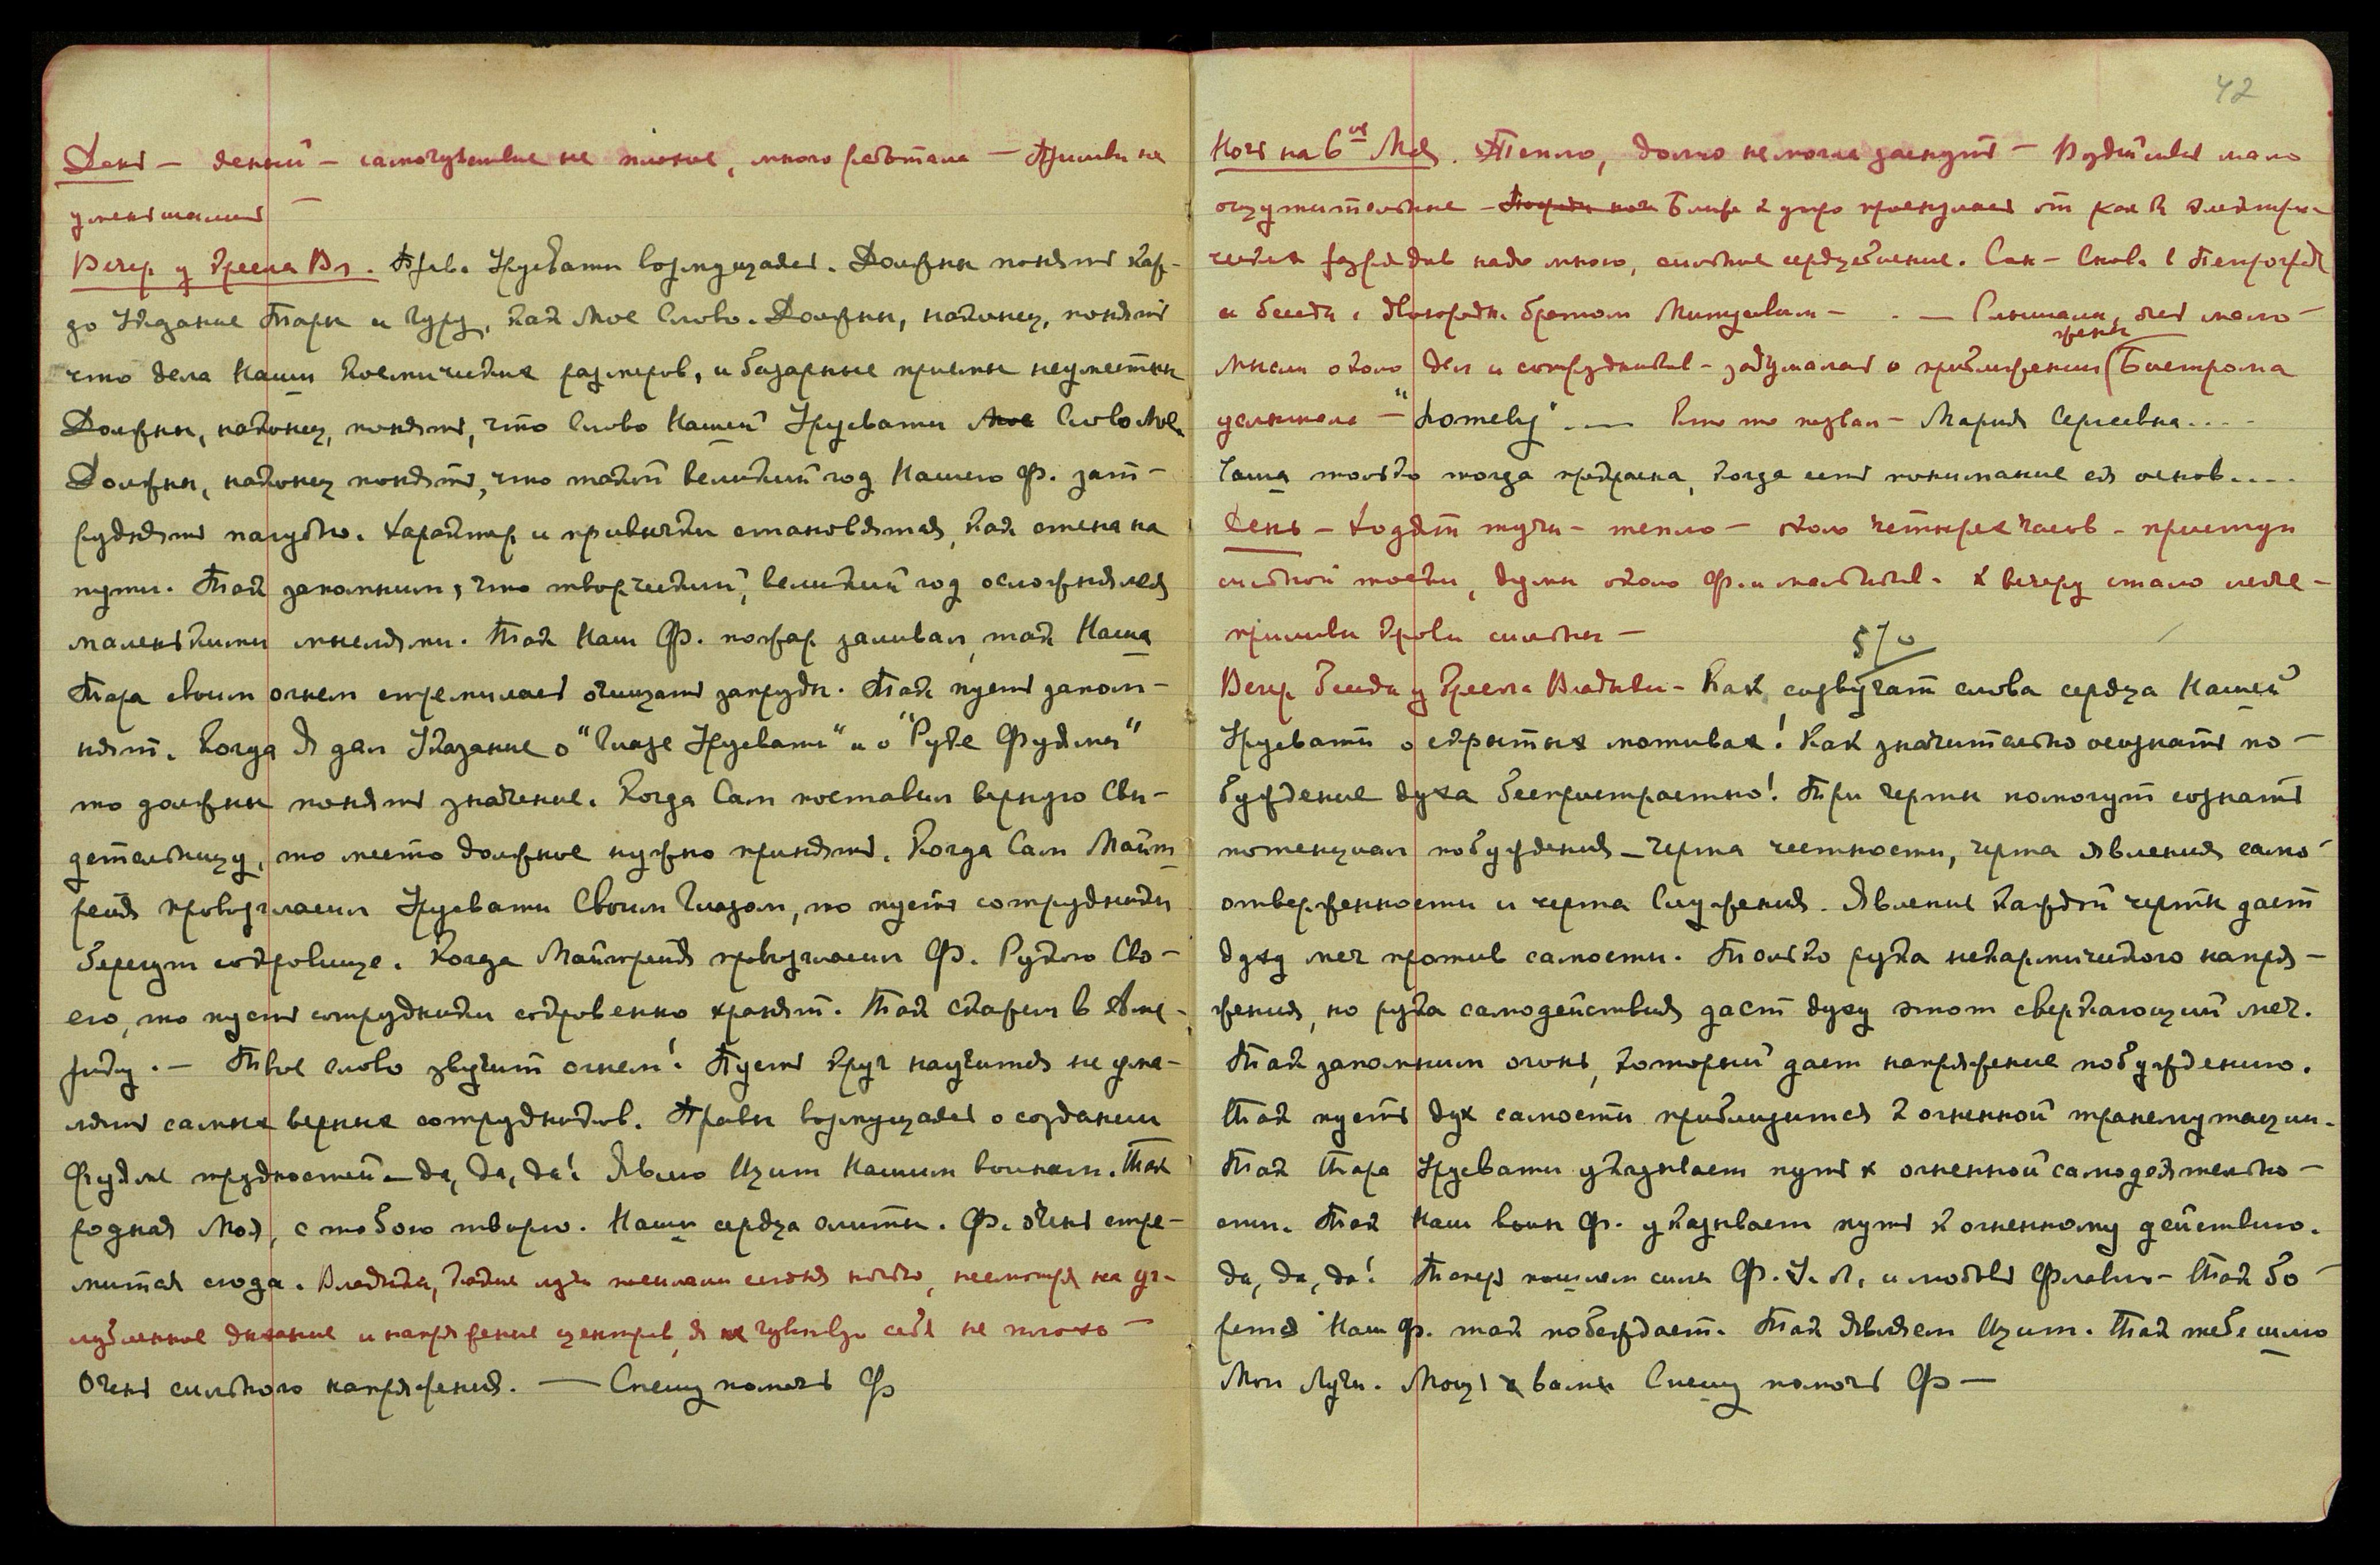 День – ясный – самочувствие не плохое, много работала – Приливы не
уменьшались –
Вечер у кресла Вл. Права Урусвати возмущаясь. Должны понять каж-
до Указание Тары и Гуру, как Мое Слово. Должны, наконец, понять
что дела Наши космических размеров, и базарные приемы неуместны
Должны, наконец, понять, что Слово Нашей Урусвати Мое Слово Мое.
Должны, наконец понять, что такой великий год Нашего Ф. зат-
руднять пагубно. Характер и привычки становятся, как стена на
пути. Так запомним, что творческий, великий год осложнялся
маленькими мыслями. Так Наш Ф. пожар заливал, так Наша
Тара своим огнем стремилась очищать запруды. Так пусть запом-
нят. Когда Я дал Указание о "Глазе Урусвати" и о "Руке Фуямы"
то должны понять значение. Когда Сам поставил верную Сви-
детельницу, то место должное нужно принять. Когда Сам Майт
рейя провозгласил Урусвати Своим Глазом, то пусть сотрудники
берегут сокровище. Когда Майтрейя провозгласил Ф. Рукою Сво-
его, то пусть сотрудники сокровенно хранят. Так скажем в Аме-
рику. – Твое слово звучит огнем! Пусть круг научится не ума-
лять самых верных сотрудников. Правы возмущаясь о создании
Фуяме трудностей – да, да, да! Явлю Щит Нашим воинам. Так
родная Моя, с тобою творю. Наши сердца слиты. Ф. очень стре-
мится сюда. Владыка, какие лучи посылали сегодня ночью, несмотря на уг-
лубленное дыхание и напряжение центров, я чувствую себя не плохо –
Очень сильного напряжения. — Спешу помочь Ф
42
Ночь на 6ое Мая. Тепло, долго не могла заснуть – Воздействия мало
ощутительные – Ближе к утру проснулась от как б электри-
ческих разрядов надо мною, сильное сердцебиение. Сон – Снова в Петрограде
и беседа с двоюродн. братом Митусовым – . – Слышала, очень мало –
мысли около дел и сотрудников – задумалась о приближении (Бистрома
жены
услышала – " . — Кто то позвал – Мария Сергеевна....
Чаша только тогда прекрасна, когда есть понимание ея основ....
День – Ходят тучи – тепло – около четырех часов – приступ
сильной тоски, думы около Ф. и К вечеру стало легче –
приливы крови сильны –
570
Вечер Беседа у Кресла Владыки – Как созвучат слова сердца Нашей
Урусвати о скрытых мотивах! Как значительно осознать по-
буждение духа беспристрастно! Три черты помогут сознать
потенциал побуждения – черта честности, черта явления само-
отверженности и черта Служения. Явление каждой черты дает
духу меч против самости. Только рука некармического напря-
жения, но рука самодействия даст духу этот сверкающий меч.
Так запомним огонь, который дает напряжение побуждению.
Так пусть дух самости приблизится к огненной трансмутации.
Так Тара Урусвати указывает путь к огненной самодеятельно-
сти. Так Наш воин Ф. указывает путь к огненному действию.
Да, да, да! Теперь пошлем силы Ф. У. л. и любовь Флавию – Так бо-
рется Наш Ф. так побеждает. Так Являем Щит. Так тебе шлю
Мои Лучи. Мощь с вами Спешу помочь Ф –